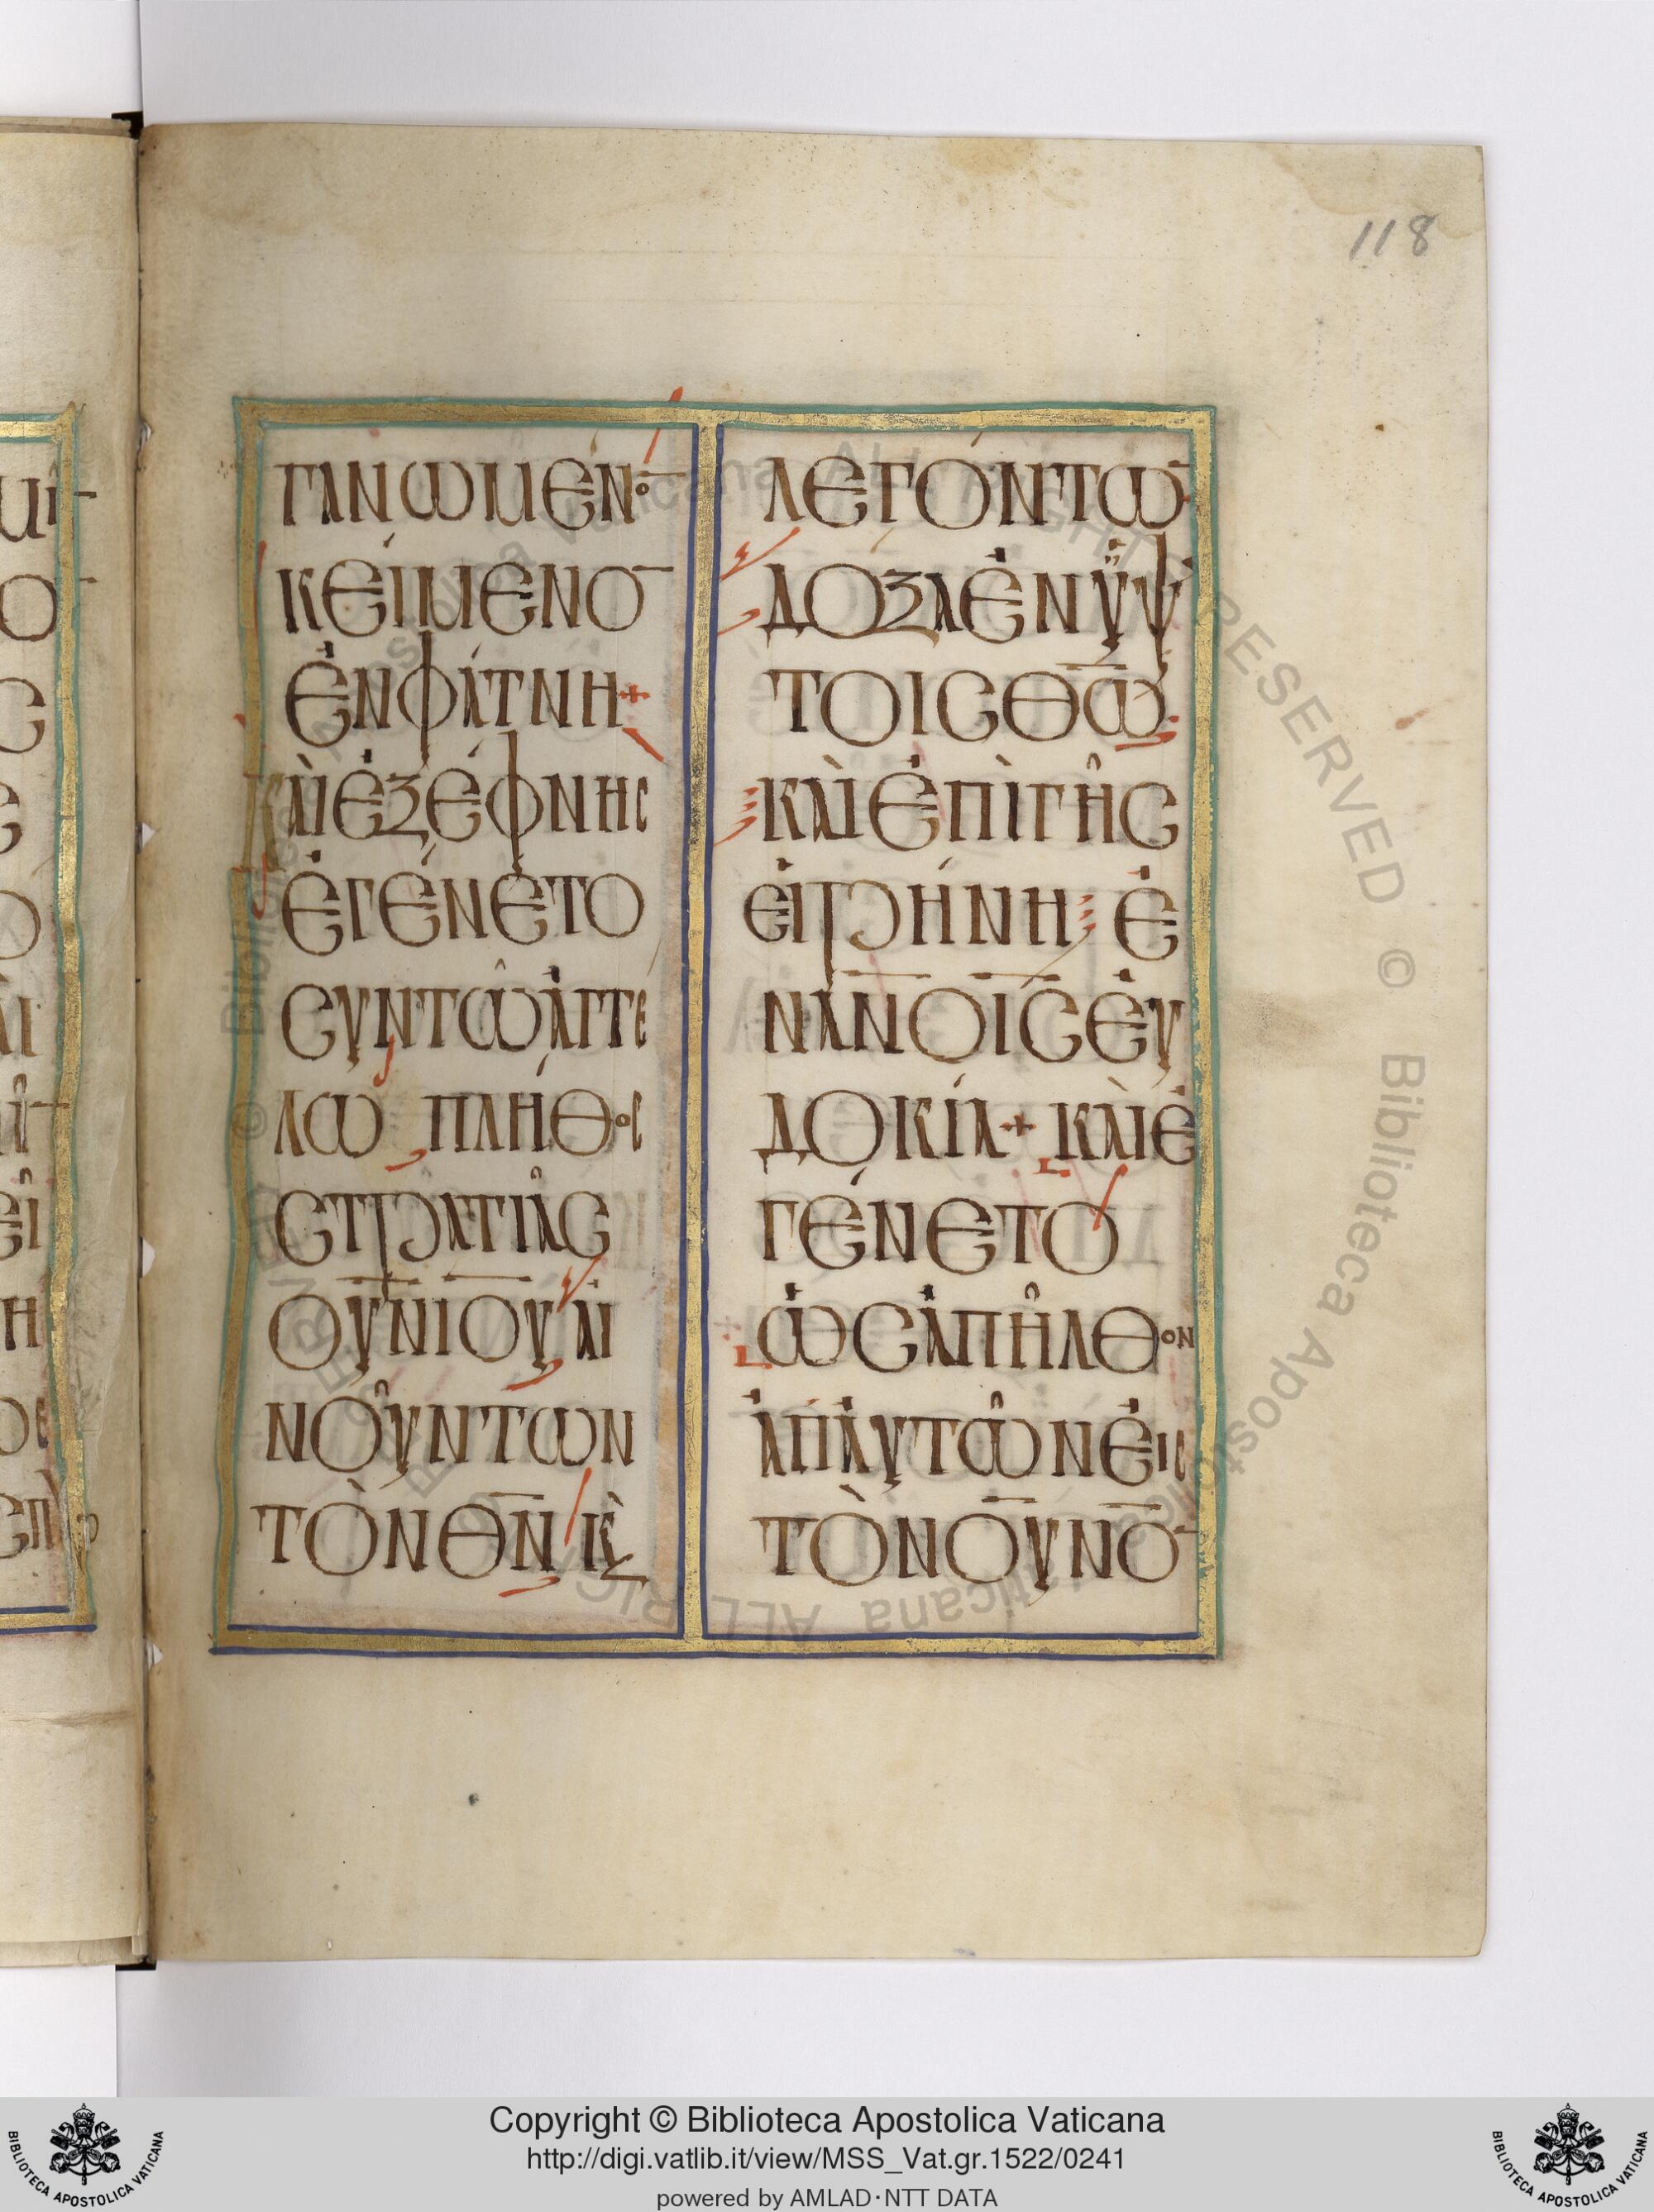 118
ΓΑΝΩΜΈΝΟ̅
ΚΕΊΜΕΝΟ̅
ἘΝΦΆΤΝΗ+
ΚΑῚἘΞΈΦΝΗΣ
ἘΓΈΝΕΤΟ
ΣΥΝΤΩ͂ἈΓΓΕ
ΛΩ ΠΛΗ͂ΘΟΣ
ΣΤΡΑΤΙΑ͂Σ
ΟΥ̅Ν̅ΙΟΥ ΑἸ
ΝΟΥ͂ΝΤΩΝ
ΤῸΝΘ̅Ν̅ Κ̀
ΛΕΓΌΝΤΩ̅
ΔΟΞΑἘΝΫΨΊ
ΤΟΙΣΘ̅Ω̅
ΚΑῚἘΠῚΓΗ͂Σ
ΕἸΡΉΝΗ Ἐ
ΝΑ̅Ν̅ΟΙ̅Σ̅ΕΥ̓
ΔΟΚΊΑ+ ΚΑῚἘ
ΓΈΝΕΤΟ
ὩΣἈΠΗ͂ΛΘΟΝ
ἈΠΑΥ̓ΤΩ͂ΝΕἸΣ
ΤῸΝΟΥ̅ΝΟ̅
Copyright © Biblioteca Apostolica Vaticana
http://digi.vatlib.it/view/MSS_Vat.gr.1522/0241
powered by AMLAD·NTT DATA
BIBLIOTECA APOSTOLICA VATICANA
BIBLIOTECA APOSTOLICA VATICANA